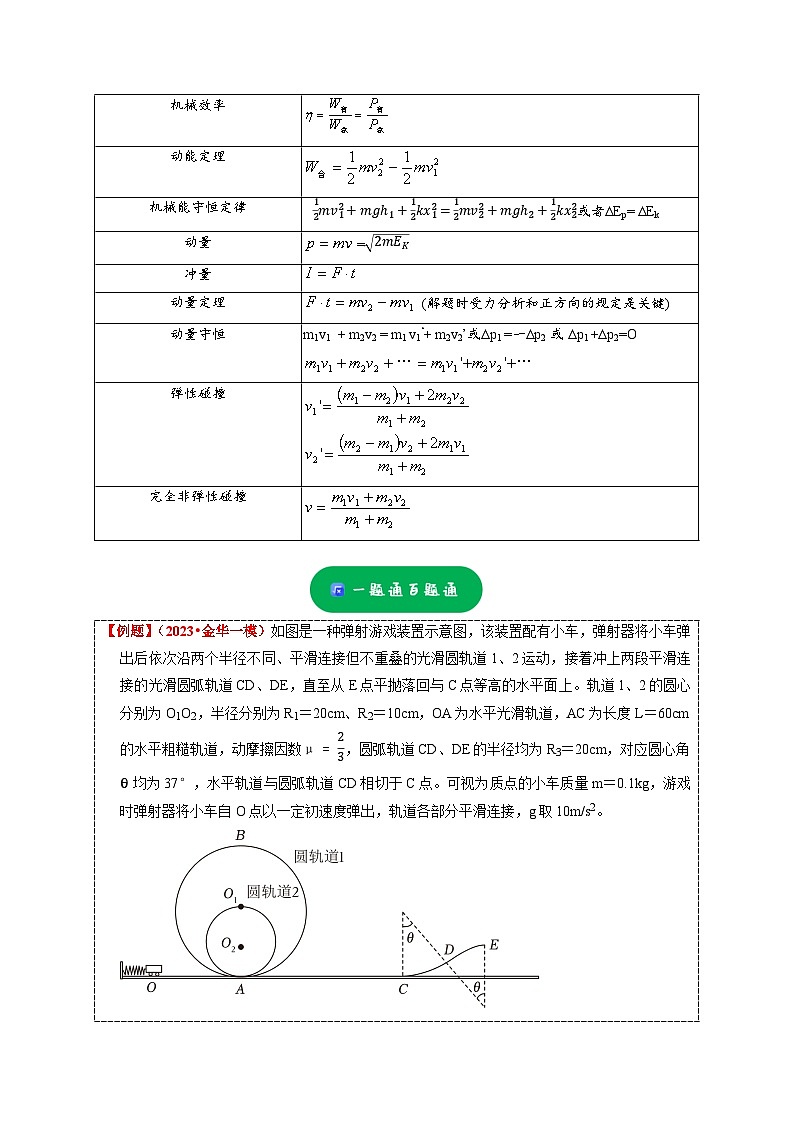 机械效率
η = W有/W总 = P有/P总
动能定理
W合 = 1/2 mv₂² − 1/2 mv₁²
机械能守恒定律
1/2 mv₁² + mgh₁ + 1/2 kx₁² = 1/2 mv₂² + mgh₂ + 1/2 kx₂²或者ΔEp= ΔEk
动量
p = mv =√(2mE_K)
冲量
I = F · t
动量定理
F · t = mv₂ − mv₁ (解题时受力分析和正方向的规定是关键)
动量守恒
m₁v₁ + m₂v₂ = m₁ v₁'+ m₂v₂'或Δp₁ =—Δp₂ 或 Δp₁ +Δp₂=O
m₁v₁ + m₂v₂ + ⋯ = m₁v₁'+m₂v₂'+⋯
弹性碰撞
v₁'= ((m₁ − m₂)v₁ + 2m₂v₂)/(m₁ + m₂)
v₂'= ((m₂ − m₁)v₂ + 2m₁v₁)/(m₁ + m₂)
完全非弹性碰撞
v = (m₁v₁ + m₂v₂)/(m₁ + m₂)
一题通百题通
【例题】(2023•金华一模)如图是一种弹射游戏装置示意图，该装置配有小车，弹射器将小车弹
出后依次沿两个半径不同、平滑连接但不重叠的光滑圆轨道 1、2 运动，接着冲上两段平滑连
接的光滑圆弧轨道 CD、DE，直至从 E 点平抛落回与 C 点等高的水平面上。轨道 1、2 的圆心
分别为 O₁O₂，半径分别为 R₁＝20cm、R₂＝10cm，OA 为水平光滑轨道，AC 为长度 L＝60cm
的水平粗糙轨道，动摩擦因数 μ = 2/3，圆弧轨道 CD、DE 的半径均为 R₃＝20cm，对应圆心角
θ 均为 37°，水平轨道与圆弧轨道 CD 相切于 C 点。可视为质点的小车质量 m＝0.1kg，游戏
时弹射器将小车自 O 点以一定初速度弹出，轨道各部分平滑连接，g 取 10m/s²。
B
圆轨道1
O₁
圆轨道2
O₂
θ
D
E
O
A
C
θ